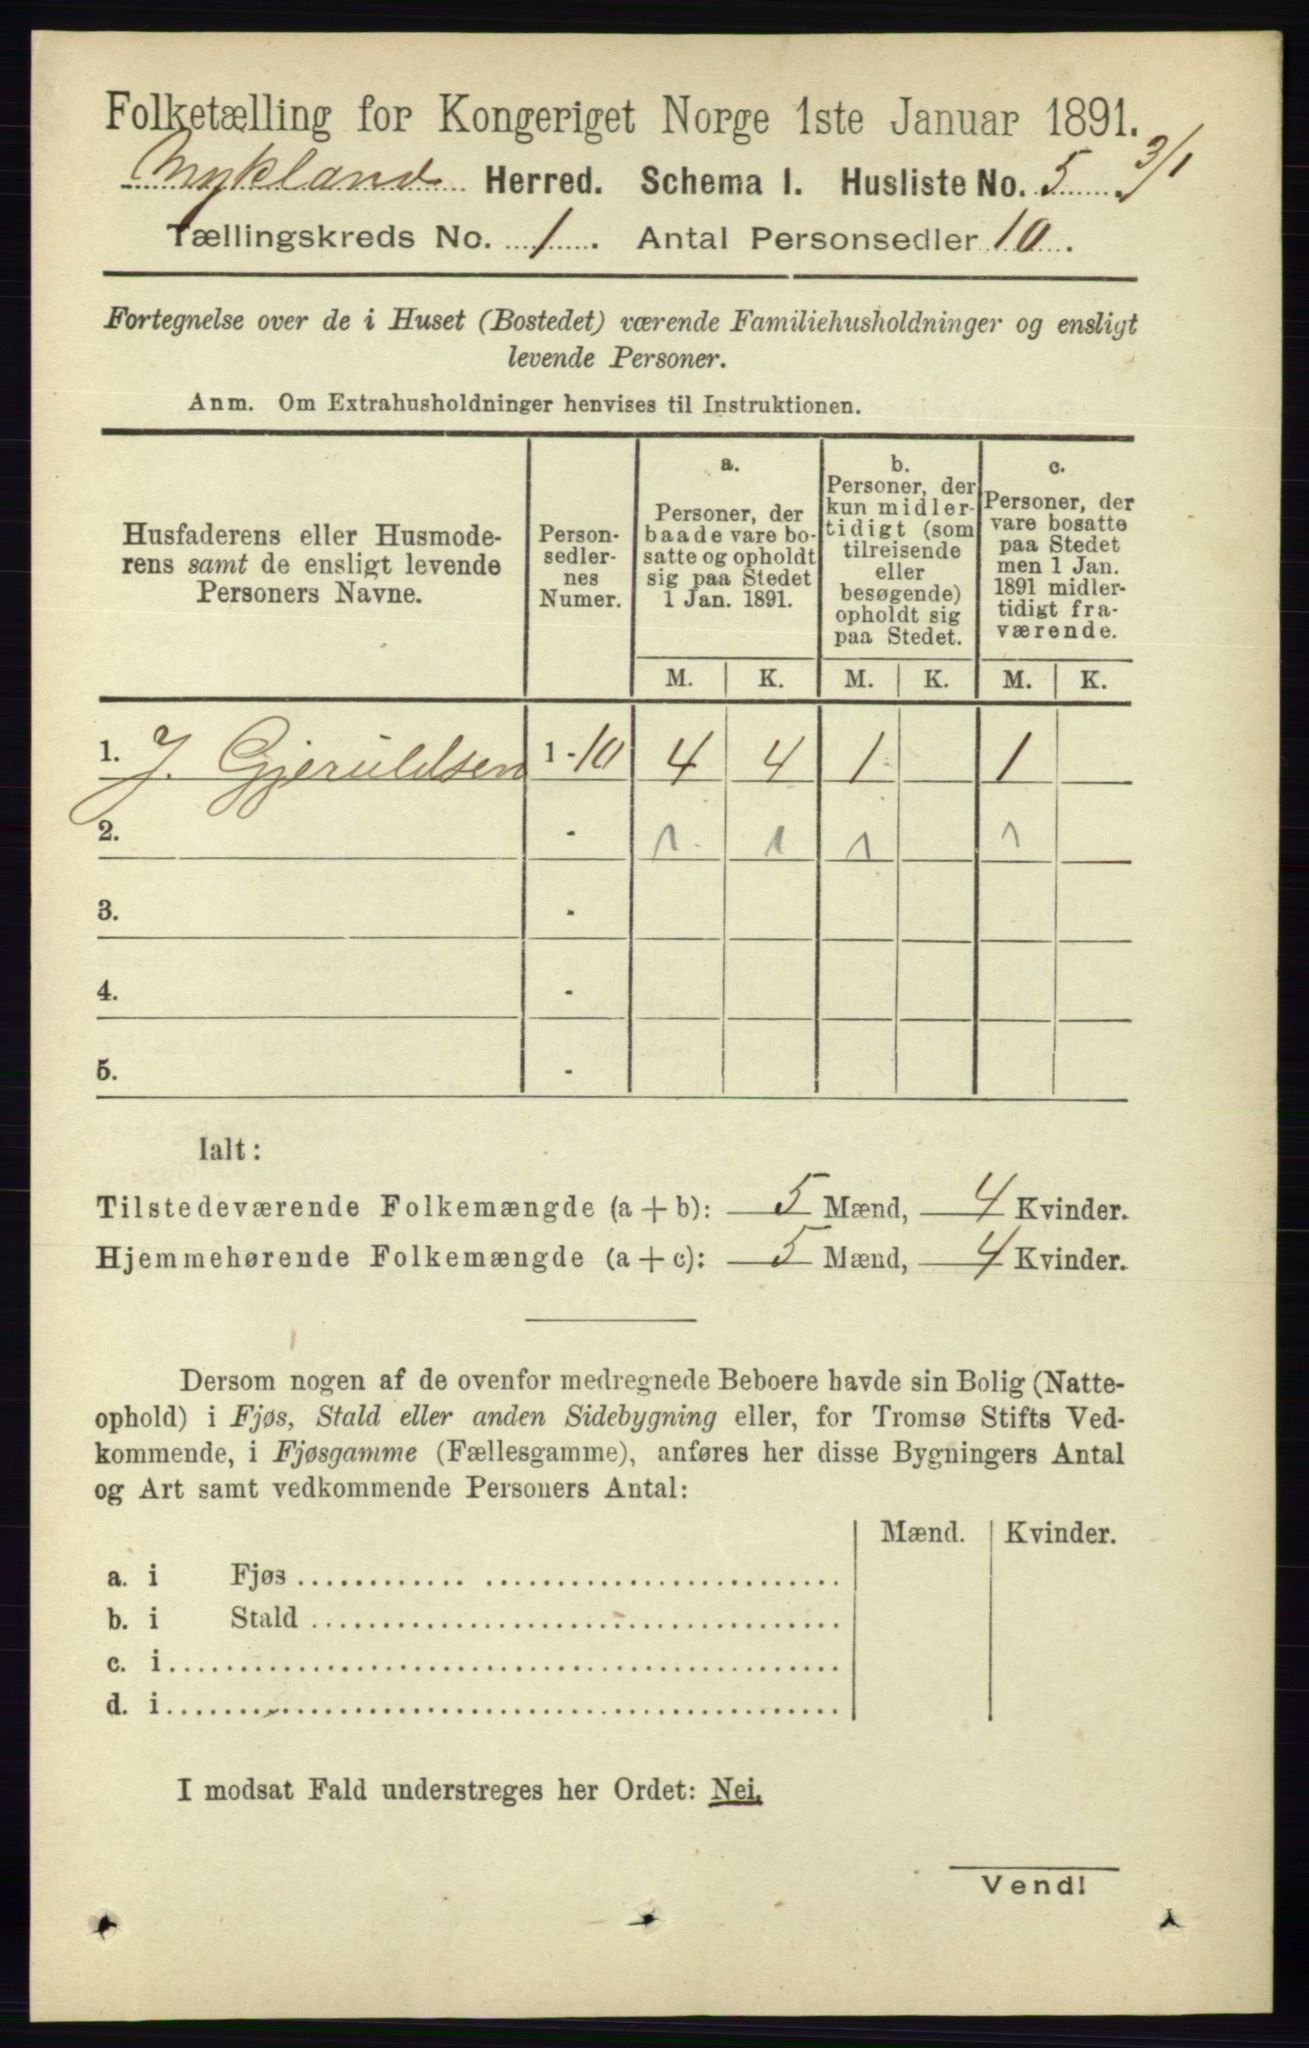 Folketælling for Kongeriget Norge 1ste Januar 1891.
Mykland Herred. Schema I. Husliste No. 5 3/1
Tællingskreds No. 1. Antal Personsedler 10.
Fortegnelse over de i Huset (Bostedet) værende Familiehusholdninger og ensligt
levende Personer.
Anm. Om Extrahusholdninger henvises til Instruktionen.
Husfaderens eller Husmode-
rens samt de ensligt levende
Personers Navne.
Person-
sedler-
nes
Numer.
a.
Personer, der
baade vare bo-
satte og opholdt
sig paa Stedet
1 Jan. 1891.
b.
Personer, der
kun midler-
tidigt (som
tilreisende
eller
besøgende)
opholdt sig
paa Stedet.
c.
Personer, der
vare bosatte
paa Stedet
men 1 Jan.
1891 midler-
tidigt fra-
værende.
M. K. M. K. M. K.
1. J. Gjeruldsen 1-10 4 4 1 1
2. - 1 1 1 1
3. -
4. -
5. -
Ialt:
Tilstedeværende Folkemængde (a+b): 5 Mænd, 4 Kvinder.
Hjemmehørende Folkemængde (a+c): 5 Mænd, 4 Kvinder.
Dersom nogen af de ovenfor medregnede Beboere havde sin Bolig (Natte-
ophold) i Fjøs, Stald eller anden Sidebygning eller, for Tromsø Stifts Ved-
kommende, i Fjøsgamme (Fællesgamme), anføres her disse Bygningers Antal
og Art samt vedkommende Personers Antal:
Mænd. Kvinder.
a. i Fjøs
b. i Stald
c. i
d. i
I modsat Fald understreges her Ordet: Nei.
Vend!